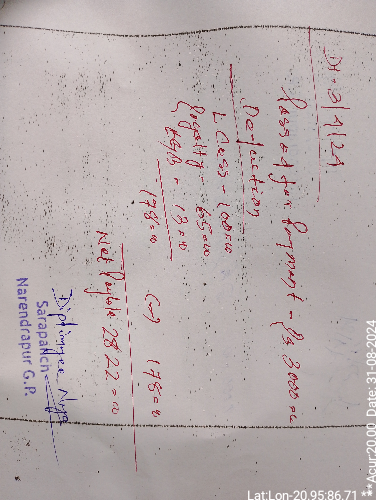 Dt - 3/1/24
Passed for Payment - Rs 3000=00
Deduction
L Cess - 100=00
Royalty - 65=00
13=00
178=00 (-) 178=00
Net Payble 2822=00
Sarapanch
Narendrapur G.P.
Lat:Lon-20.95:86.71
**Acur:20.00 Date: 31-08-2024